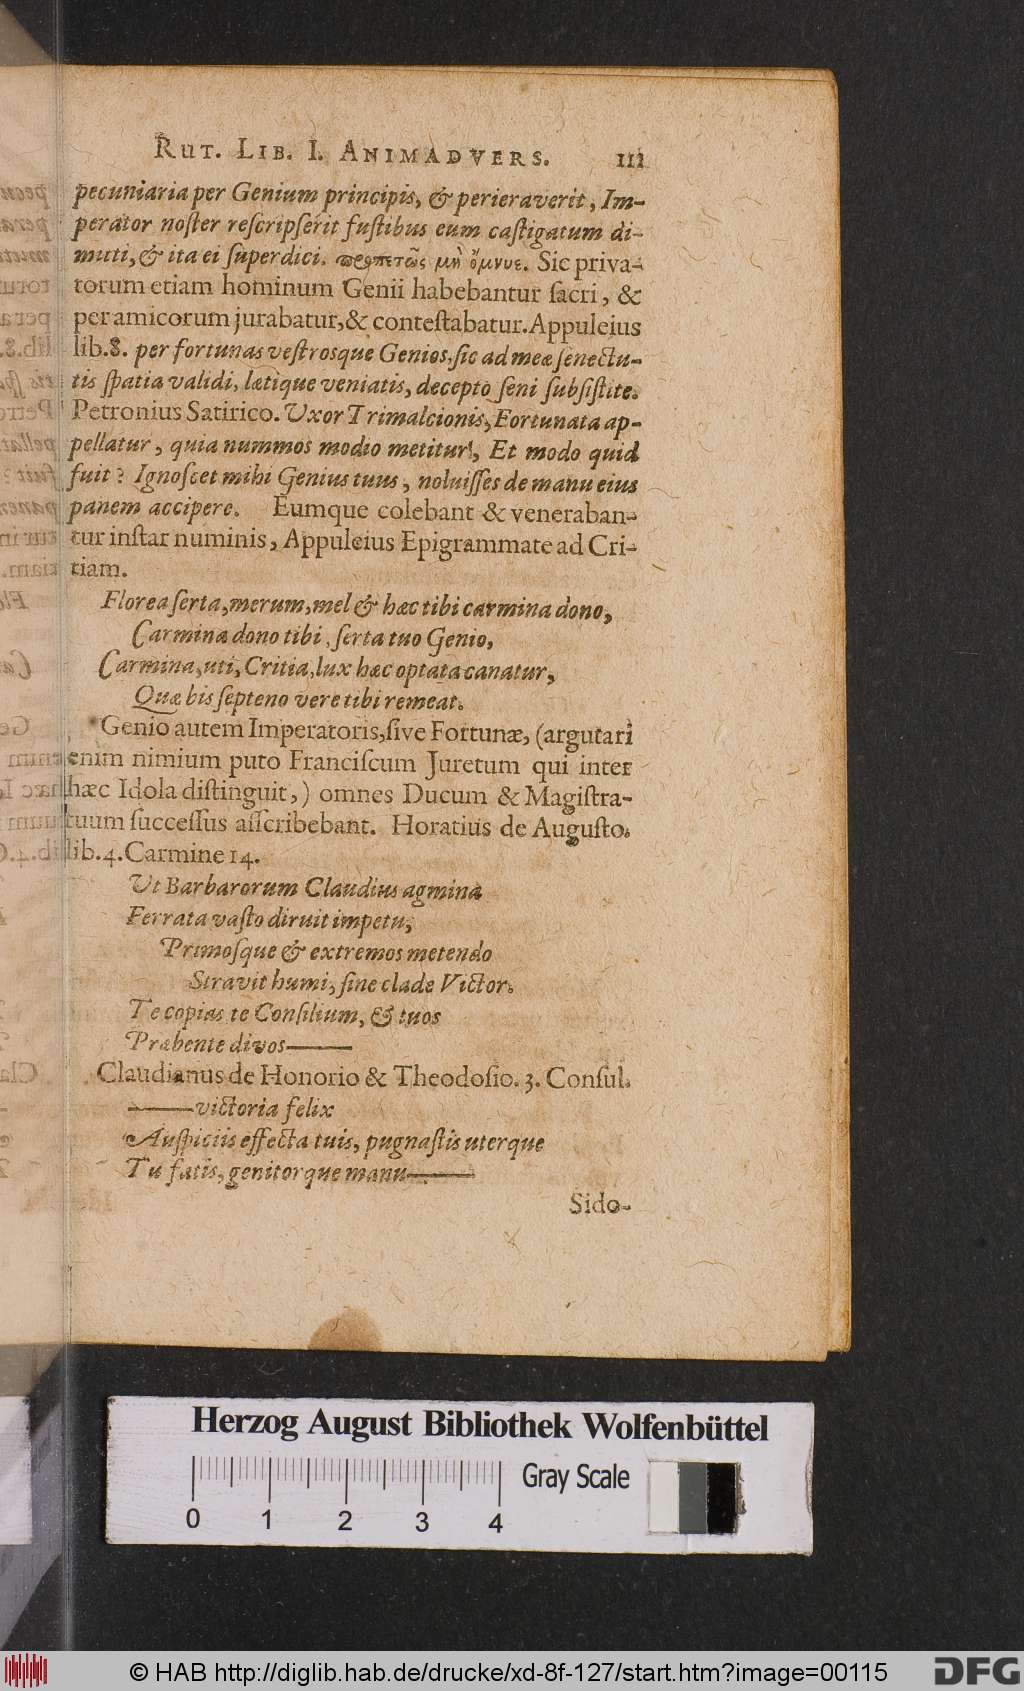 RUT. LIB. I. ANIMADVERS. 111
pecuniaria per Genium principis, & perieraverit, Im-
perator noster rescripserit fustibus eum castigatum di-
muti, & ita ei superdici. προπετῶς μὴ ὄμνυε. Sic priva-
torum etiam hominum Genii habebantur sacri, &
per amicorum jurabatur, & contestabatur. Appuleius
lib. 8. per fortunas vestrosque Genios, sic ad meæ senectu-
tis spatia validi, lætique veniatis, decepto seni subsistite.
Petronius Satirico. Uxor Trimalcionis, Fortunata ap-
pellatur, quia nummos modio metitur, Et modo quid
fuit? Ignoscet mihi Genius tuus, noluisses de manu eius
panem accipere. Eumque colebant & veneraban-
tur instar numinis, Appuleius Epigrammate ad Cri-
tiam.
Florea serta, merum, mel & hæc tibi carmina dono,
Carmina dono tibi, serta tuo Genio,
Carmina, uti, Critia, lux hæc optata canatur,
Quæ bis septeno vere tibi remeat.
Genio autem Imperatoris, sive Fortunæ, (argutari
enim nimium puto Franciscum Juretum qui inter
hæc Idola distinguit,) omnes Ducum & Magistra-
tuum successus asscribebant. Horatius de Augusto.
lib. 4. Carmine 14.
Ut Barbarorum Claudius agmina
Ferrata vasto diruit impetu,
Primosque & extremos metendo
Stravit humi, sine clade Victor.
Te copias te Consilium, & tuos
Præbente divos——
Claudianus de Honorio & Theodosio. 3. Consul.
——victoria felix
Auspiciis effecta tuis, pugnastis uterque
Tu fatis, genitorque manu——
Sido-
Herzog August Bibliothek Wolfenbüttel
Gray Scale
0 1 2 3 4
© HAB http://diglib.hab.de/drucke/xd-8f-127/start.htm?image=00115
DFG